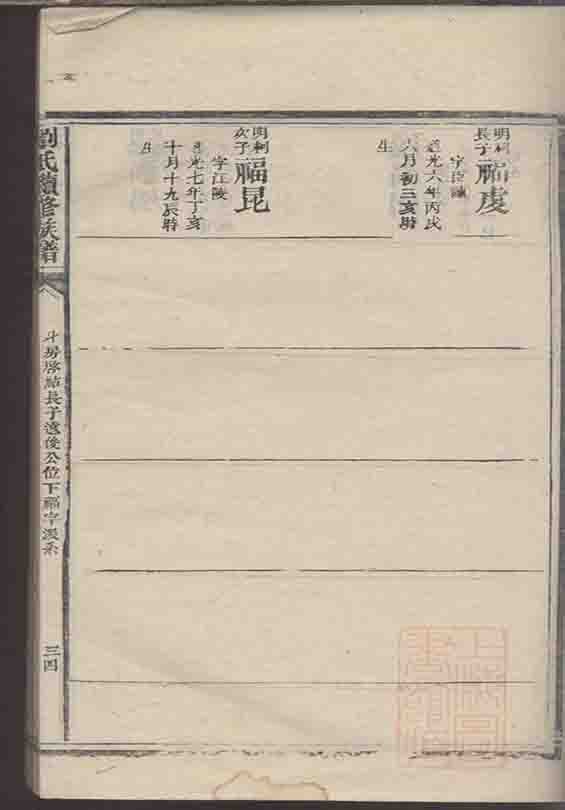 明柯
長子
福虔
字臣
道光六年丙戌
六月初三亥時
生
明柯
次子
福昆
字江陵
道光七年丁亥
十月十九辰時
生
劉氏續修族譜
斗房啓喆長子遠俊公位下福字派系
三四
上海圖書館藏